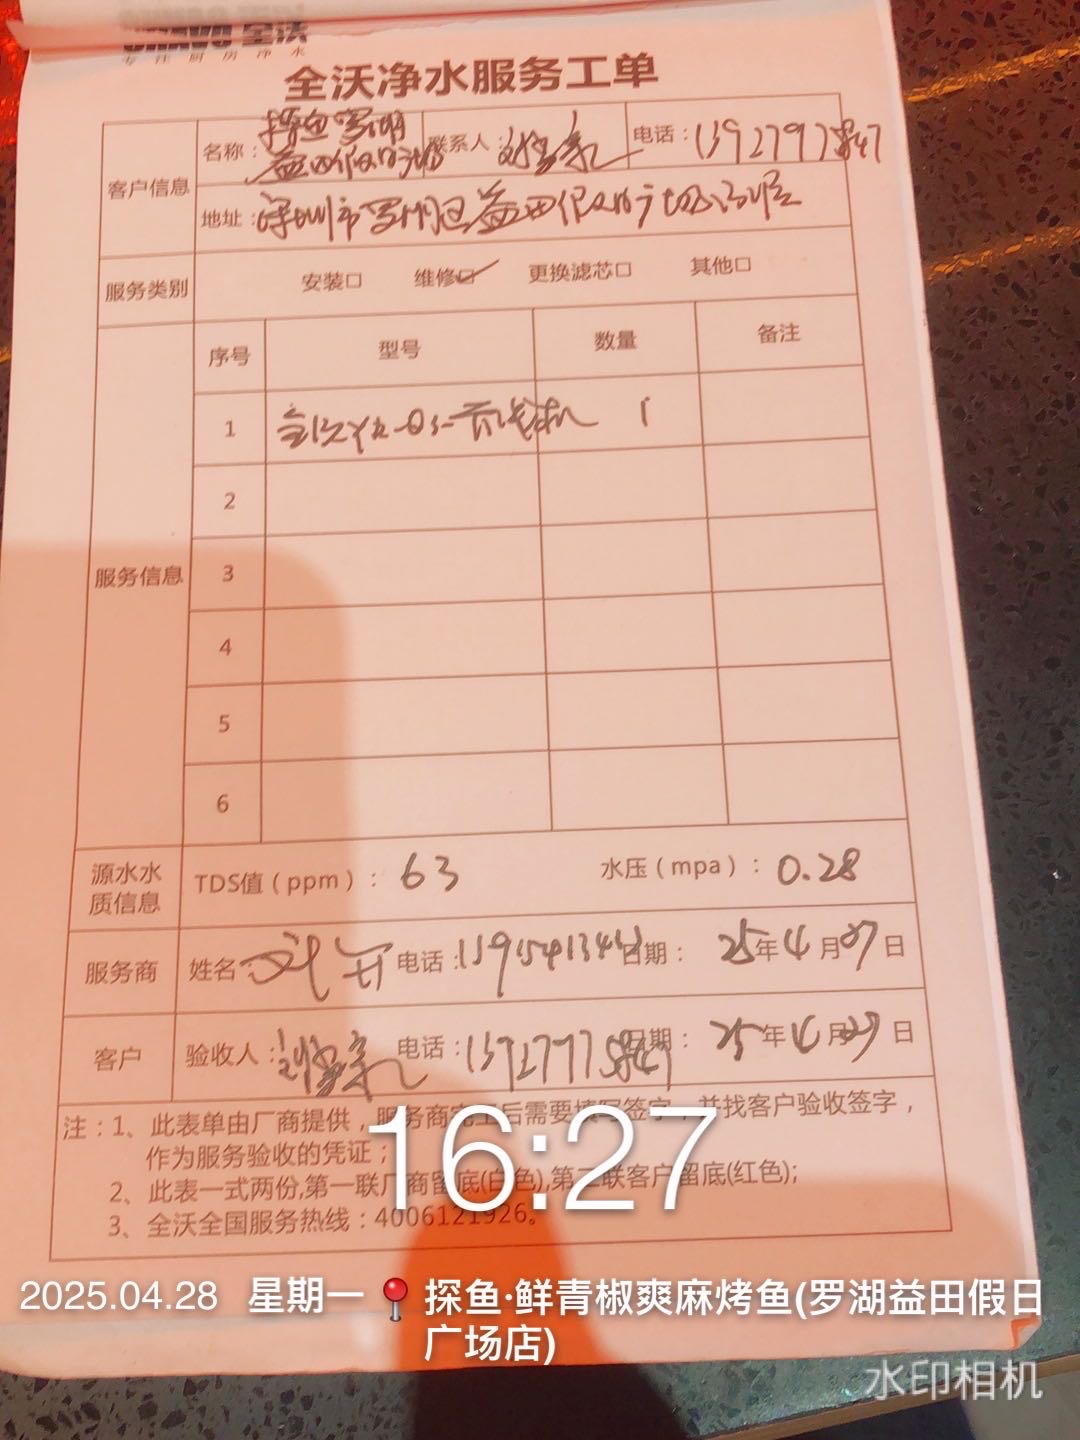 全沃
专注厨房净水
全沃净水服务工单
客户信息
名称：探鱼罗湖益田假日 联系人： 电话：
地址：深圳市罗湖区益田假日广场
服务类别 安装□ 维修☑ 更换滤芯□ 其他□
服务信息
序号 型号 数量 备注
1 1
2
3
4
5
6
源水水质信息 TDS值（ppm）：63 水压（mpa）：0.28
服务商 姓名： 电话： 日期：25年4月 日
客户 验收人： 电话： 日期：25年4月 日
注：1、此表单由厂商提供，服务商完工后需要填写签字，并找客户验收签字，
作为服务验收的凭证；
2、此表一式两份,第一联厂商留底(白色),第二联客户留底(红色);
3、全沃全国服务热线：4006121926。
16:27
2025.04.28 星期一 探鱼·鲜青椒爽麻烤鱼(罗湖益田假日
广场店)
水印相机